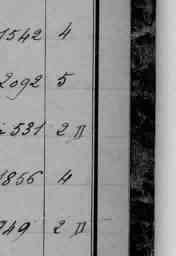 1542 4
2092 5
531 2 II
1856 4
949 2 II